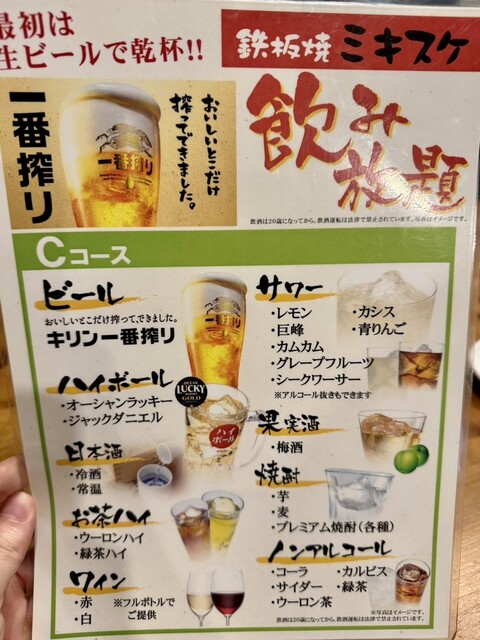 最初は
生ビールで乾杯!!
鉄板焼 ミキスケ
一番搾り
おいしいとこだけ
搾ってできました。
一番搾り
飲み
放題
飲酒は20歳になってから。飲酒運転は法律で禁止されています。写真はイメージです。
Cコース
ビール
おいしいとこだけ搾って、できました。
キリン一番搾り
一番搾り
ハイボール
・オーシャンラッキー
・ジャックダニエル
OCEAN
LUCKY
GOLD
ハイ
ボール
日本酒
・冷酒
・常温
お茶ハイ
・ウーロンハイ
・緑茶ハイ
ワイン
・赤
・白
※フルボトルで
ご提供
サワー
・レモン
・カシス
・巨峰
・青りんご
・カムカム
・グレープフルーツ
・シークワーサー
※アルコール抜きもできます
果実酒
・梅酒
焼酎
・芋
・麦
・プレミアム焼酎(各種)
ノンアルコール
・コーラ
・カルピス
・サイダー
・緑茶
・ウーロン茶
※写真はイメージです。
飲酒は20歳になってから。飲酒運転は法律で禁止されています。